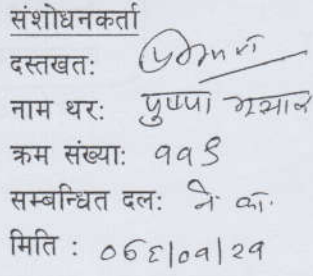 संशोधनकर्ता
दस्तखत:
नाम थर: पुष्पा भुसाल
क्रम संख्या: ११९
सम्बन्धित दल: ने. का.
मिति : ०६६।०१।२१